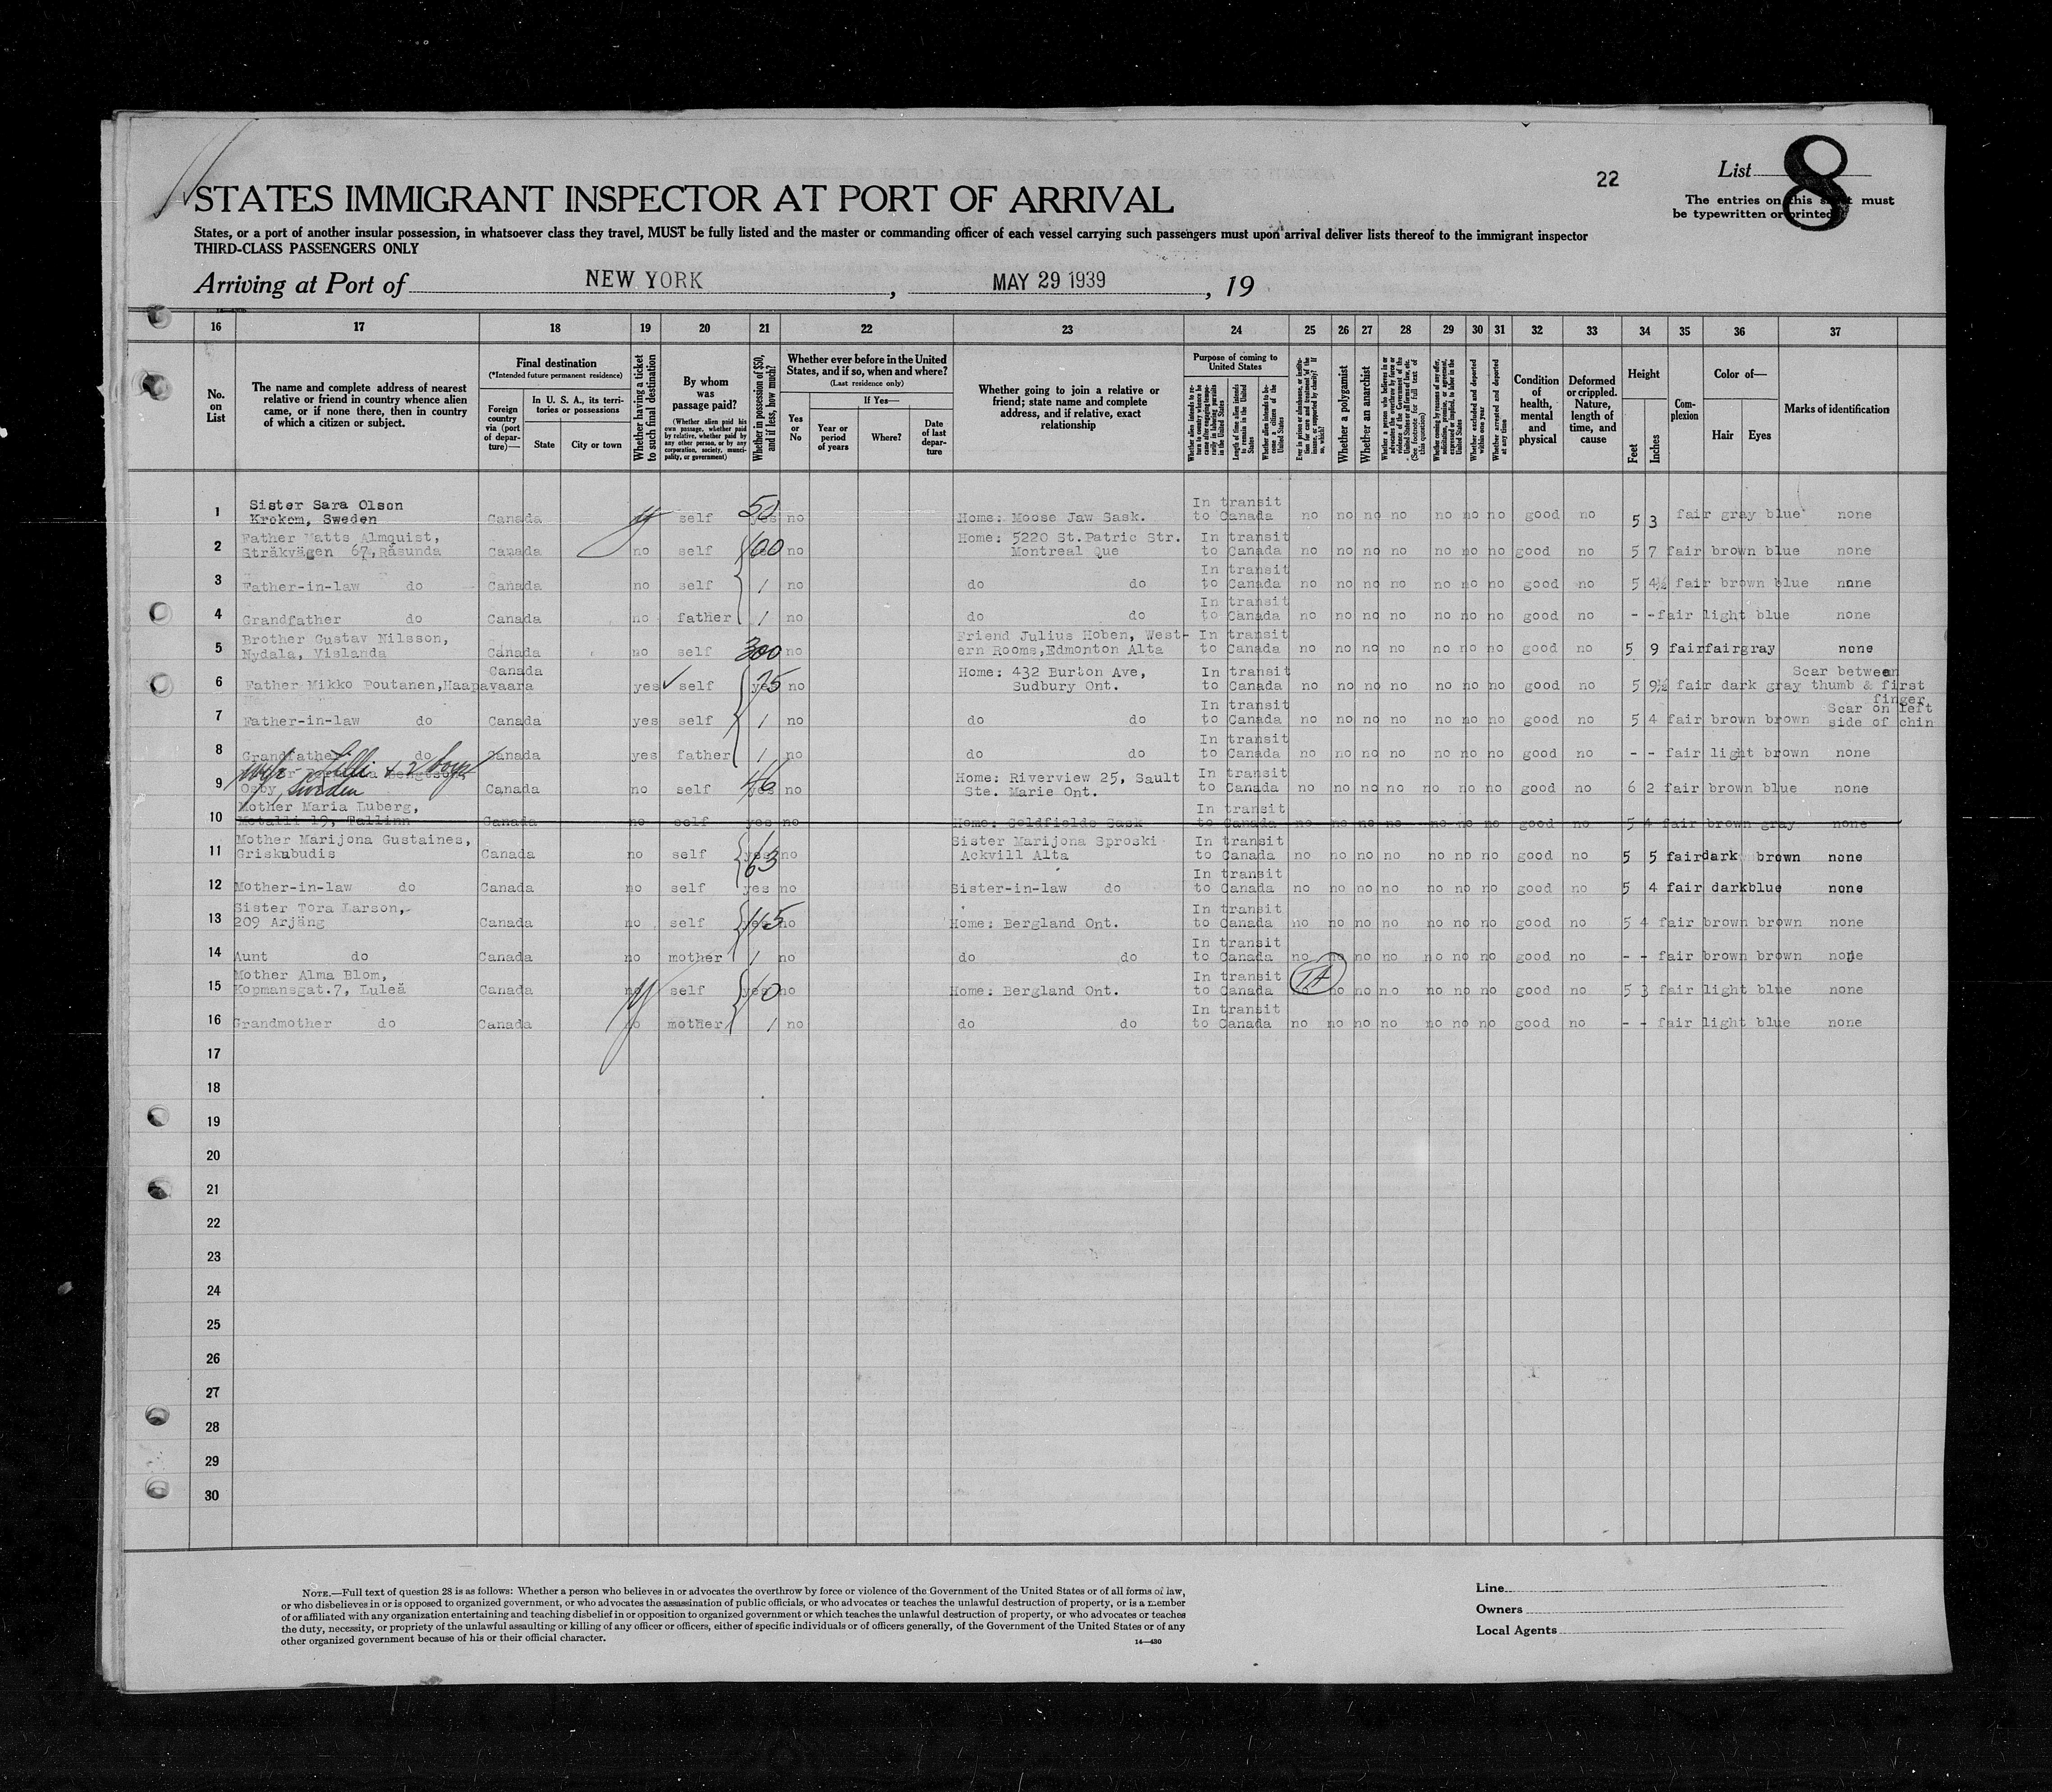 22
List 8
STATES IMMIGRANT INSPECTOR AT PORT OF ARRIVAL
The entries on this sheet must
be typewritten or printed
States, or a port of another insular possession, in whatsoever class they travel, MUST be fully listed and the master or commanding officer of each vessel carrying such passengers must upon arrival deliver lists thereof to the immigrant inspector
THIRD-CLASS PASSENGERS ONLY
Arriving at Port of NEW YORK , MAY 29 1939 , 19
16 17 18 19 20 21 22 23 24 25 26 27 28 29 30 31 32 33 34 35 36 37
No. on List
The name and complete address of nearest
relative or friend in country whence alien
came, or if none there, then in country
of which a citizen or subject.
Final destination
(*Intended future permanent residence)
Foreign country via (port of departure)—
In U. S. A., its territories or possessions
State
City or town
Whether having a ticket to such final destination
By whom was passage paid?
(Whether alien paid his own passage, whether paid by relative, whether paid by any other person, or by any corporation, society, municipality, or government)
Whether in possession of $50, and if less, how much?
Whether ever before in the United States, and if so, when and where?
(Last residence only)
Yes or No
If Yes—
Year or period of years
Where?
Date of last departure
Whether going to join a relative or
friend; state name and complete
address, and if relative, exact
relationship
Purpose of coming to United States
Whether alien intends to return to country whence he came after engaging temporarily in laboring pursuits in the United States
Length of time alien intends to remain in the United States
Whether alien intends to become a citizen of the United States
Ever in prison or almshouse, or institution for care and treatment of the insane, or supported by charity? If so, which?
Whether a polygamist
Whether an anarchist
Whether a person who believes in or advocates the overthrow by force or violence of the Government of the United States or all forms of law, etc. (See footnote for full text of this question)
Whether coming by reason of any offer, solicitation, promise, or agreement, expressed or implied, to labor in the United States
Whether excluded and deported within one year
Whether arrested and deported at any time
Condition of health, mental and physical
Deformed or crippled. Nature, length of time, and cause
Height
Feet
Inches
Complexion
Color of—
Hair
Eyes
Marks of identification
1 Sister Sara Olson Krokom, Sweden Canada self yes 50 no Home: Moose Jaw Sask. In transit to Canada no no no no no no no good no 5 3 fair gray blue none
2 Father Matts Almquist, Sträkvägen 67, Råsunda Canada no self 100 no Home: 5220 St.Patric Str. Montreal Que In transit to Canada no no no no no no no good no 5 7 fair brown blue none
3 Father-in-law do Canada no self no do do In transit to Canada no no no no no no no good no 5 4½ fair brown blue none
4 Grandfather do Canada no father no do do In transit to Canada no no no no no no no good no - - fair light blue none
5 Brother Gustav Nilsson, Nydala, Vislanda Canada no self 300 no Friend Julius Hoben, Western Rooms, Edmonton Alta In transit to Canada no no no no no no no good no 5 9 fair fair gray none
6 Father Mikko Poutanen, Haapavaara Canada yes self yes 75 no Home: 432 Burton Ave, Sudbury Ont. In transit to Canada no no no no no no no good no 5 9½ fair dark gray Scar between thumb & first finger
7 Father-in-law do Canada yes self no do do In transit to Canada no no no no no no no good no 5 4 fair brown brown Scar on left side of chin
8 Grandfather do Canada yes father no do do In transit to Canada no no no no no no no good no - - fair light brown none
9 wife - Lilli + 2 boys Osby, Sweden Canada no self yes 46 no Home: Riverview 25, Sault Ste. Marie Ont. In transit to Canada no no no no no no no good no 6 2 fair brown blue none
10 Mother Maria Luberg, Metalli 19, Tallinn Canada no self yes no Home: Goldfields Sask In transit to Canada no no no no no no no good no 5 4 fair brown gray none
11 Mother Marijona Gustaines, Griskabudis Canada no self yes 63 no Sister Marijona Sproski Ackvill Alta In transit to Canada no no no no no no no good no 5 5 fair dark brown none
12 Mother-in-law do Canada no self yes no Sister-in-law do In transit to Canada no no no no no no no good no 5 4 fair dark blue none
13 Sister Tora Larson, 209 Arjäng Canada no self yes 115 no Home: Bergland Ont. In transit to Canada no no no no no no no good no 5 4 fair brown brown none
14 Aunt do Canada no mother no do do In transit to Canada no no no no no no no good no - - fair brown brown none
15 Mother Alma Blom, Kopmansgat.7, Luleå Canada no self yes no Home: Bergland Ont. In transit to Canada no no no no no no no good no 5 3 fair light blue none
16 Grandmother do Canada no mother no do do In transit to Canada no no no no no no no good no - - fair light blue none
17
18
19
20
21
22
23
24
25
26
27
28
29
30
NOTE.—Full text of question 28 is as follows: Whether a person who believes in or advocates the overthrow by force or violence of the Government of the United States or of all forms of law,
or who disbelieves in or is opposed to organized government, or who advocates the assassination of public officials, or who advocates or teaches the unlawful destruction of property, or is a member
of or affiliated with any organization entertaining and teaching disbelief in or opposition to organized government or which teaches the unlawful destruction of property, or who advocates or teaches
the duty, necessity, or propriety of the unlawful assaulting or killing of any officer or officers, either of specific individuals or of officers generally, of the Government of the United States or of any
other organized government because of his or their official character.
14—430
Line
Owners
Local Agents